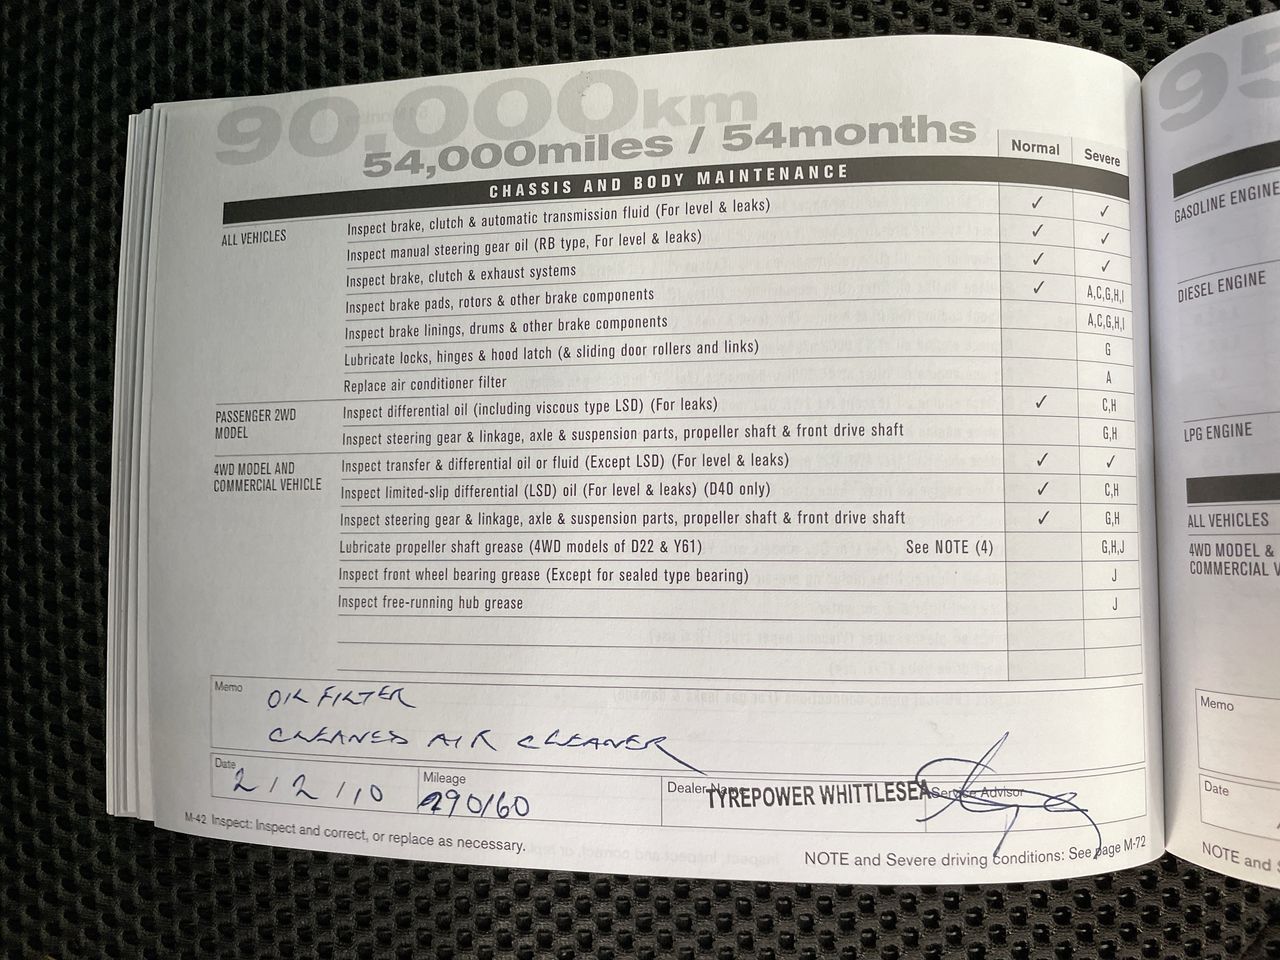 90,000km
54,000miles / 54months
Normal Severe
CHASSIS AND BODY MAINTENANCE
ALL VEHICLES Inspect brake, clutch & automatic transmission fluid (For level & leaks) ✓ ✓
Inspect manual steering gear oil (RB type, For level & leaks) ✓ ✓
Inspect brake, clutch & exhaust systems ✓ ✓
Inspect brake pads, rotors & other brake components ✓ A,C,G,H,I
Inspect brake linings, drums & other brake components A,C,G,H,I
Lubricate locks, hinges & hood latch (& sliding door rollers and links) G
Replace air conditioner filter A
PASSENGER 2WD MODEL Inspect differential oil (including viscous type LSD) (For leaks) ✓ C,H
Inspect steering gear & linkage, axle & suspension parts, propeller shaft & front drive shaft G,H
4WD MODEL AND COMMERCIAL VEHICLE Inspect transfer & differential oil or fluid (Except LSD) (For level & leaks) ✓ ✓
Inspect limited-slip differential (LSD) oil (For level & leaks) (D40 only) ✓ C,H
Inspect steering gear & linkage, axle & suspension parts, propeller shaft & front drive shaft ✓ G,H
Lubricate propeller shaft grease (4WD models of D22 & Y61) See NOTE (4) G,H,J
Inspect front wheel bearing grease (Except for sealed type bearing) J
Inspect free-running hub grease J
Memo
OIL FILTER
CLEANED AIR CLEANER
Date 2/2/10
Mileage 90160
Dealer Name TYREPOWER WHITTLESEA
Service Advisor
M-42 Inspect: Inspect and correct, or replace as necessary.
NOTE and Severe driving conditions: See page M-72
95
GASOLINE ENGINE
DIESEL ENGINE
LPG ENGINE
ALL VEHICLES
4WD MODEL &
COMMERCIAL V
Memo
Date
NOTE and